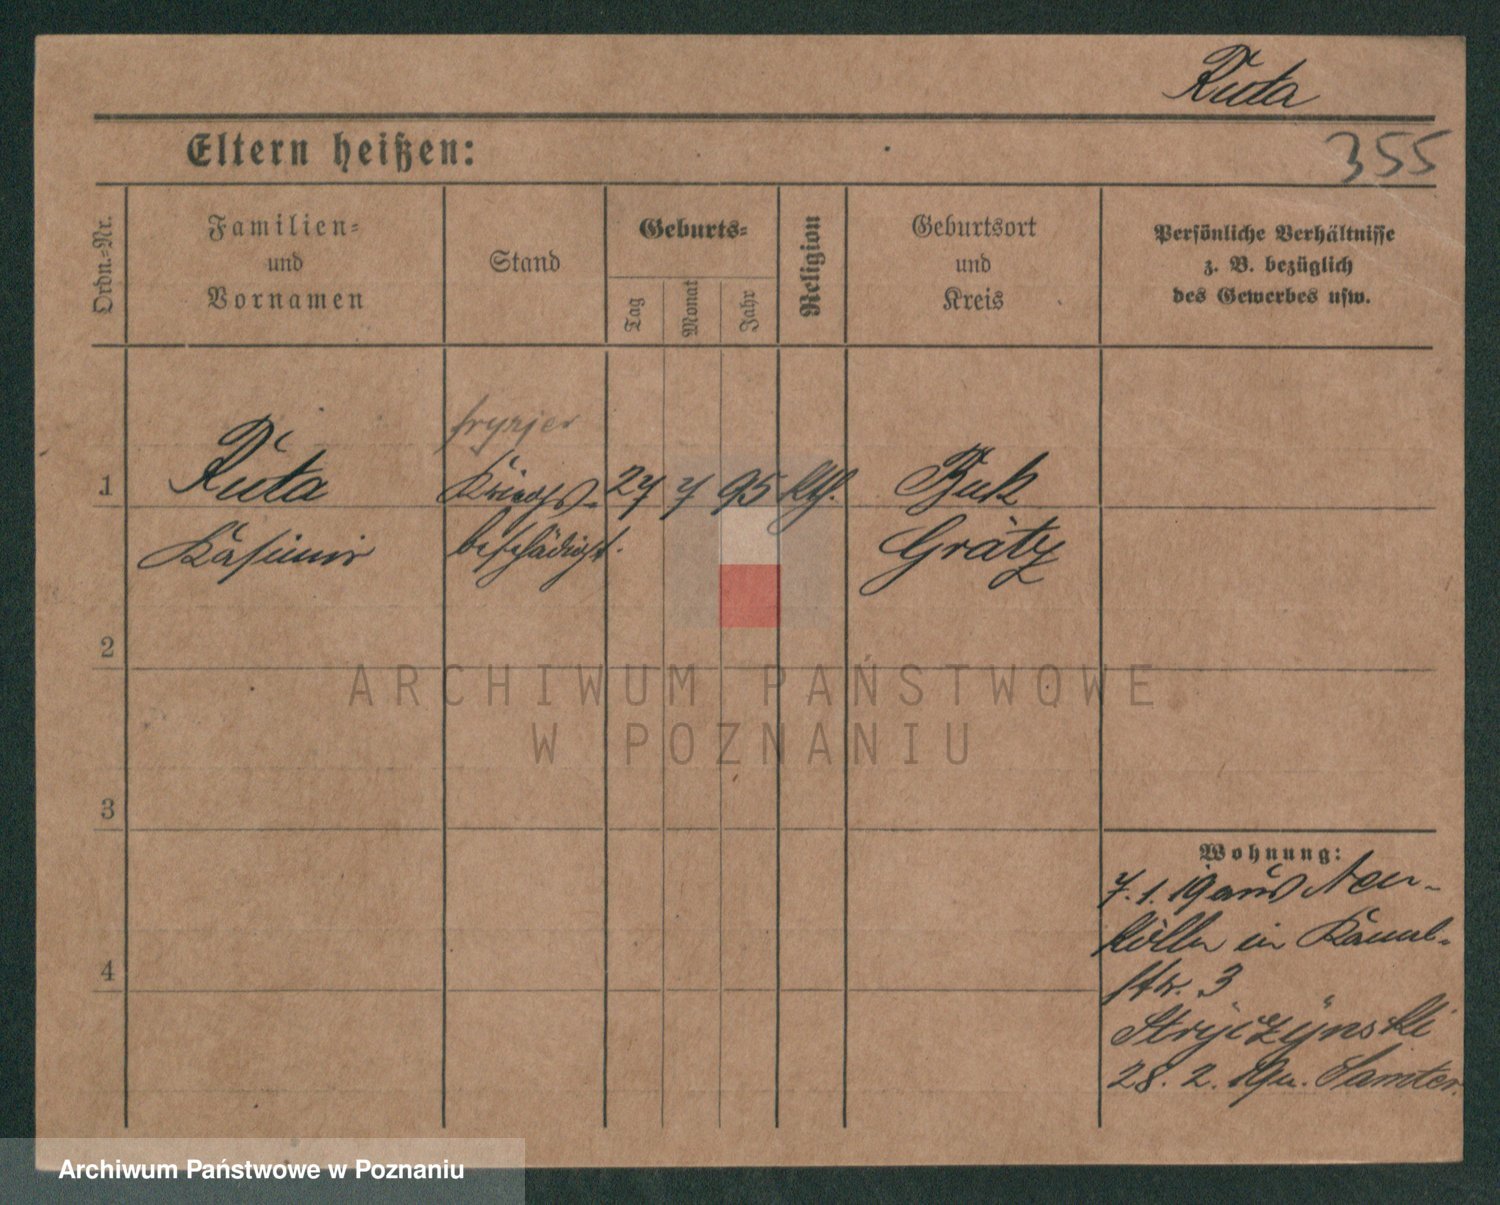 Ruta
355
Eltern heißen:
Ordn.-Nr.
Familien-
und
Vornamen
Stand
Geburts-
Tag
Monat
Jahr
Religion
Geburtsort
und
Kreis
Persönliche Verhältnisse
z. B. bezüglich
des Gewerbes usw.
fryzjer
1 Ruta Kriegs- 27 7 95 kth. Buk
Kasimir beschädigt. Grätz
2
3
4
Wohnung:
7. 1. 19 aus Neu-
kölln in Kaunl-
str. 3
Stryczynski
28. 2. 19 n. Samter.
ARCHIWUM PAŃSTWOWE
W POZNANIU
Archiwum Państwowe w Poznaniu